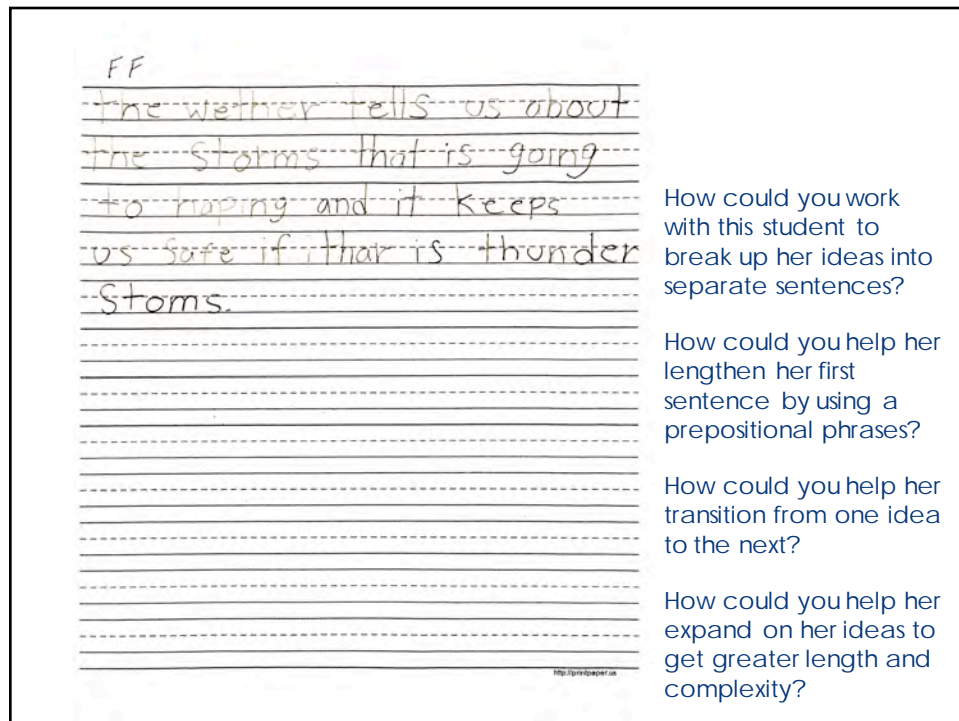 FF
the wether tells us about
the Storms that is going
to haping and it keeps
us safe if thar is thunder
Stoms.
http://printpaper.us
How could you work
with this student to
break up her ideas into
separate sentences?
How could you help her
lengthen her first
sentence by using a
prepositional phrases?
How could you help her
transition from one idea
to the next?
How could you help her
expand on her ideas to
get greater length and
complexity?